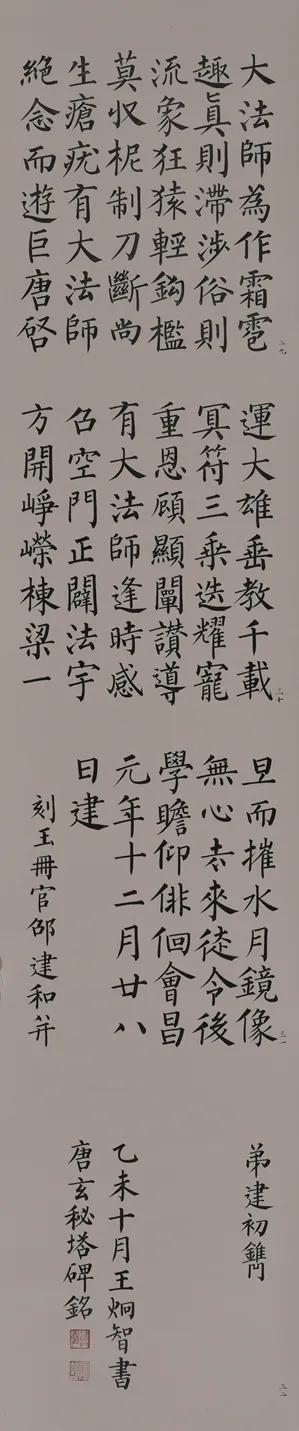 大法師為作霜雹
趣眞則滯涉俗則
流象狂猿輕鈎檻
莫収柅制刀斷尚
生瘡疣有大法師
絕念而遊巨唐啓
二九
運大雄垂教千載
冥符三乗迭耀寵
重恩顧顯闡讃導
有大法師逢時感
召空門正闢法宇
方開崢嶸棟梁一
三十
旦而摧水月鏡像
無心去來徒令後
學瞻仰俳佪會昌
元年十二月廿八
日建
刻玉冊官邵建和并
三一
弟建初鐫
乙未十月王炯智書
唐玄秘塔碑銘
三二